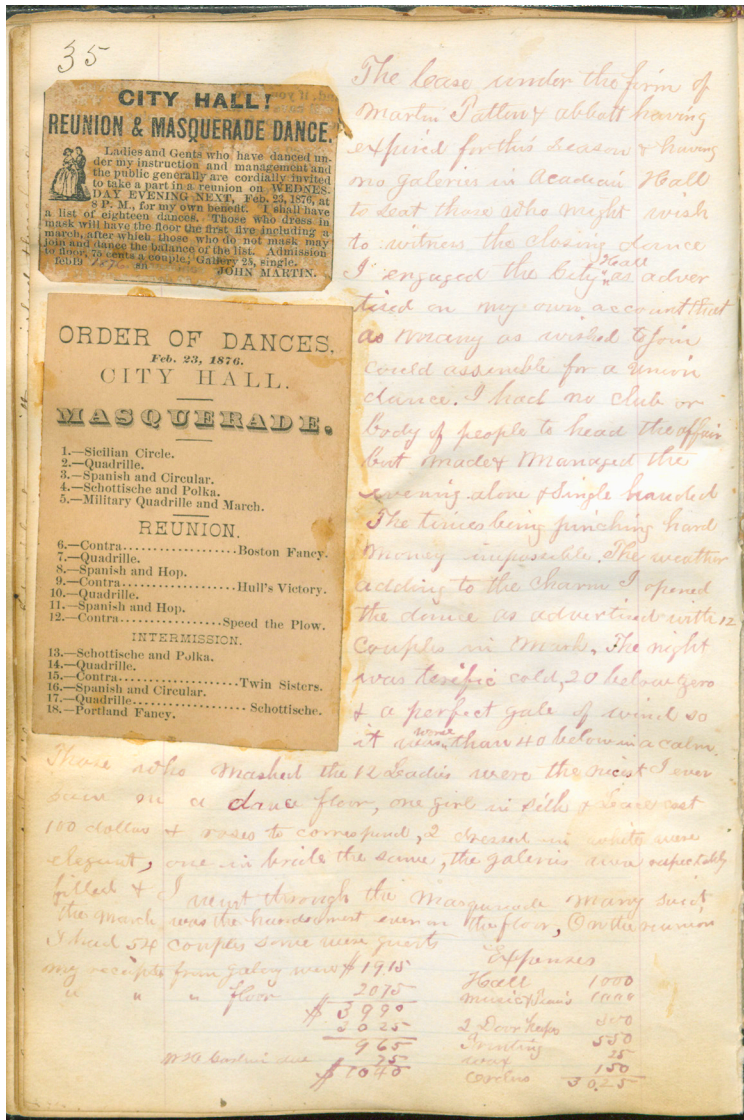 35
CITY HALL!
REUNION & MASQUERADE DANCE.
Ladies and Gents who have danced un-
der my instruction and management and
the public generally are cordially invited
to take a part in a reunion on WEDNES-
DAY EVENING NEXT, Feb. 23, 1876, at
8 P. M., for my own benefit. I shall have
a list of eighteen dances. Those who dress in
mask will have the floor the first five including a
march, after which those who do not mask may
join and dance the balance of the list. Admission
to floor, 75 cents a couple; Gallery 25, single.
feb19 JOHN MARTIN.
ORDER OF DANCES.
Feb. 23, 1876.
CITY HALL.
MASQUERADE.
1.—Sicilian Circle.
2.—Quadrille.
3.—Spanish and Circular.
4.—Schottische and Polka.
5.—Military Quadrille and March.
REUNION.
6.—Contra....................Boston Fancy.
7.—Quadrille.
8.—Spanish and Hop.
9.—Contra....................Hull's Victory.
10.—Quadrille.
11.—Spanish and Hop.
12.—Contra..................Speed the Plow.
INTERMISSION.
13.—Schottische and Polka.
14.—Quadrille.
15.—Contra....................Twin Sisters.
16.—Spanish and Circular.
17.—Quadrille..................Schottische.
18.—Portland Fancy.
The lease under the firm of
Martin Patten & abbott having
expired for this Season & having
no galeries in Acadian Hall
to Seat those who might wish
to witness the closing dance
I engaged the City Hall as adver
tised on my own account that
as many as wished to join
could assemble for a union
dance. I had no club or
body of people to head the affair
but made & Managed the
evening alone & Single handed
The times being pinching hard
Money impossible. The weather
adding to the Charm I opened
the dance as advertised with 12
Couples in Mask, The night
was terific cold, 20 below zero
& a perfect gale of wind so
it was worse than 40 below in a calm.
Those who masked the 12 Ladies were the nicest I ever
saw on a dance floor, one girl in silk & Lace cost
100 dollars & roses to correspond, 2 dressed in white were
elegant, one in the same, the galeries were respectably
filled & I went through the Masquerade Many Said
the March was the handsomest ever on the floor, On the reunion
I had 54 Couples some were guests
my receipts from galery were $1915
" " " floor 2075
$3990
3025
965
due 75
$1040
Expenses
Hall 1000
music
2 Door keeps 300
Printing 550
wax 25
150
3025